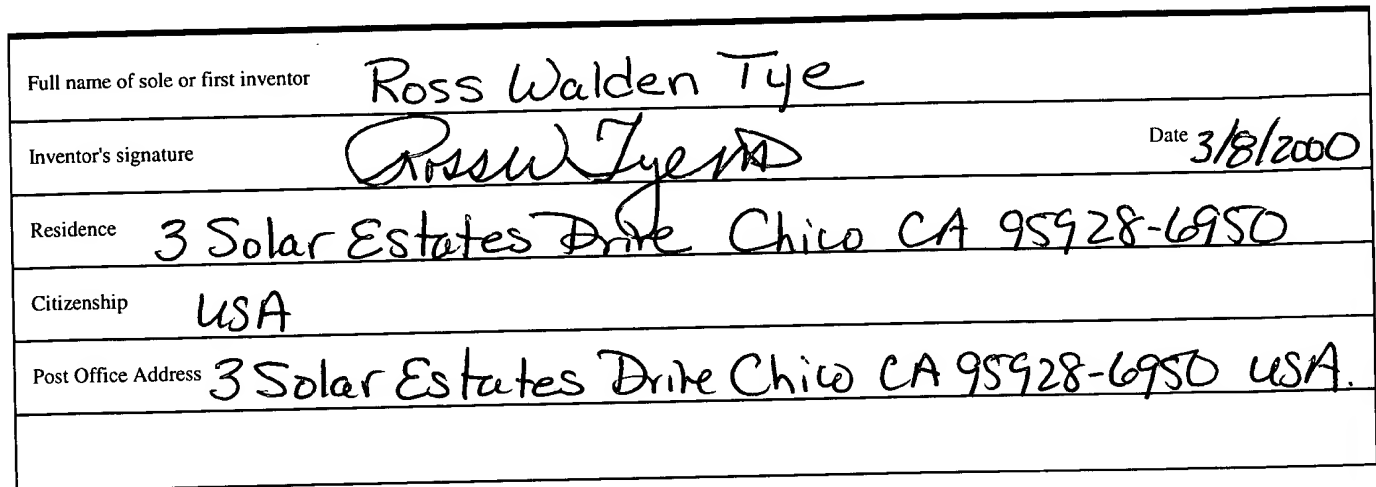 Full name of sole or first inventor Ross Walden Tye
Inventor's signature Ross W Tye MD Date 3/8/2000
Residence 3 Solar Estates Drive Chico CA 95928-6950
Citizenship USA
Post Office Address 3 Solar Estates Drive Chico CA 95928-6950 USA.